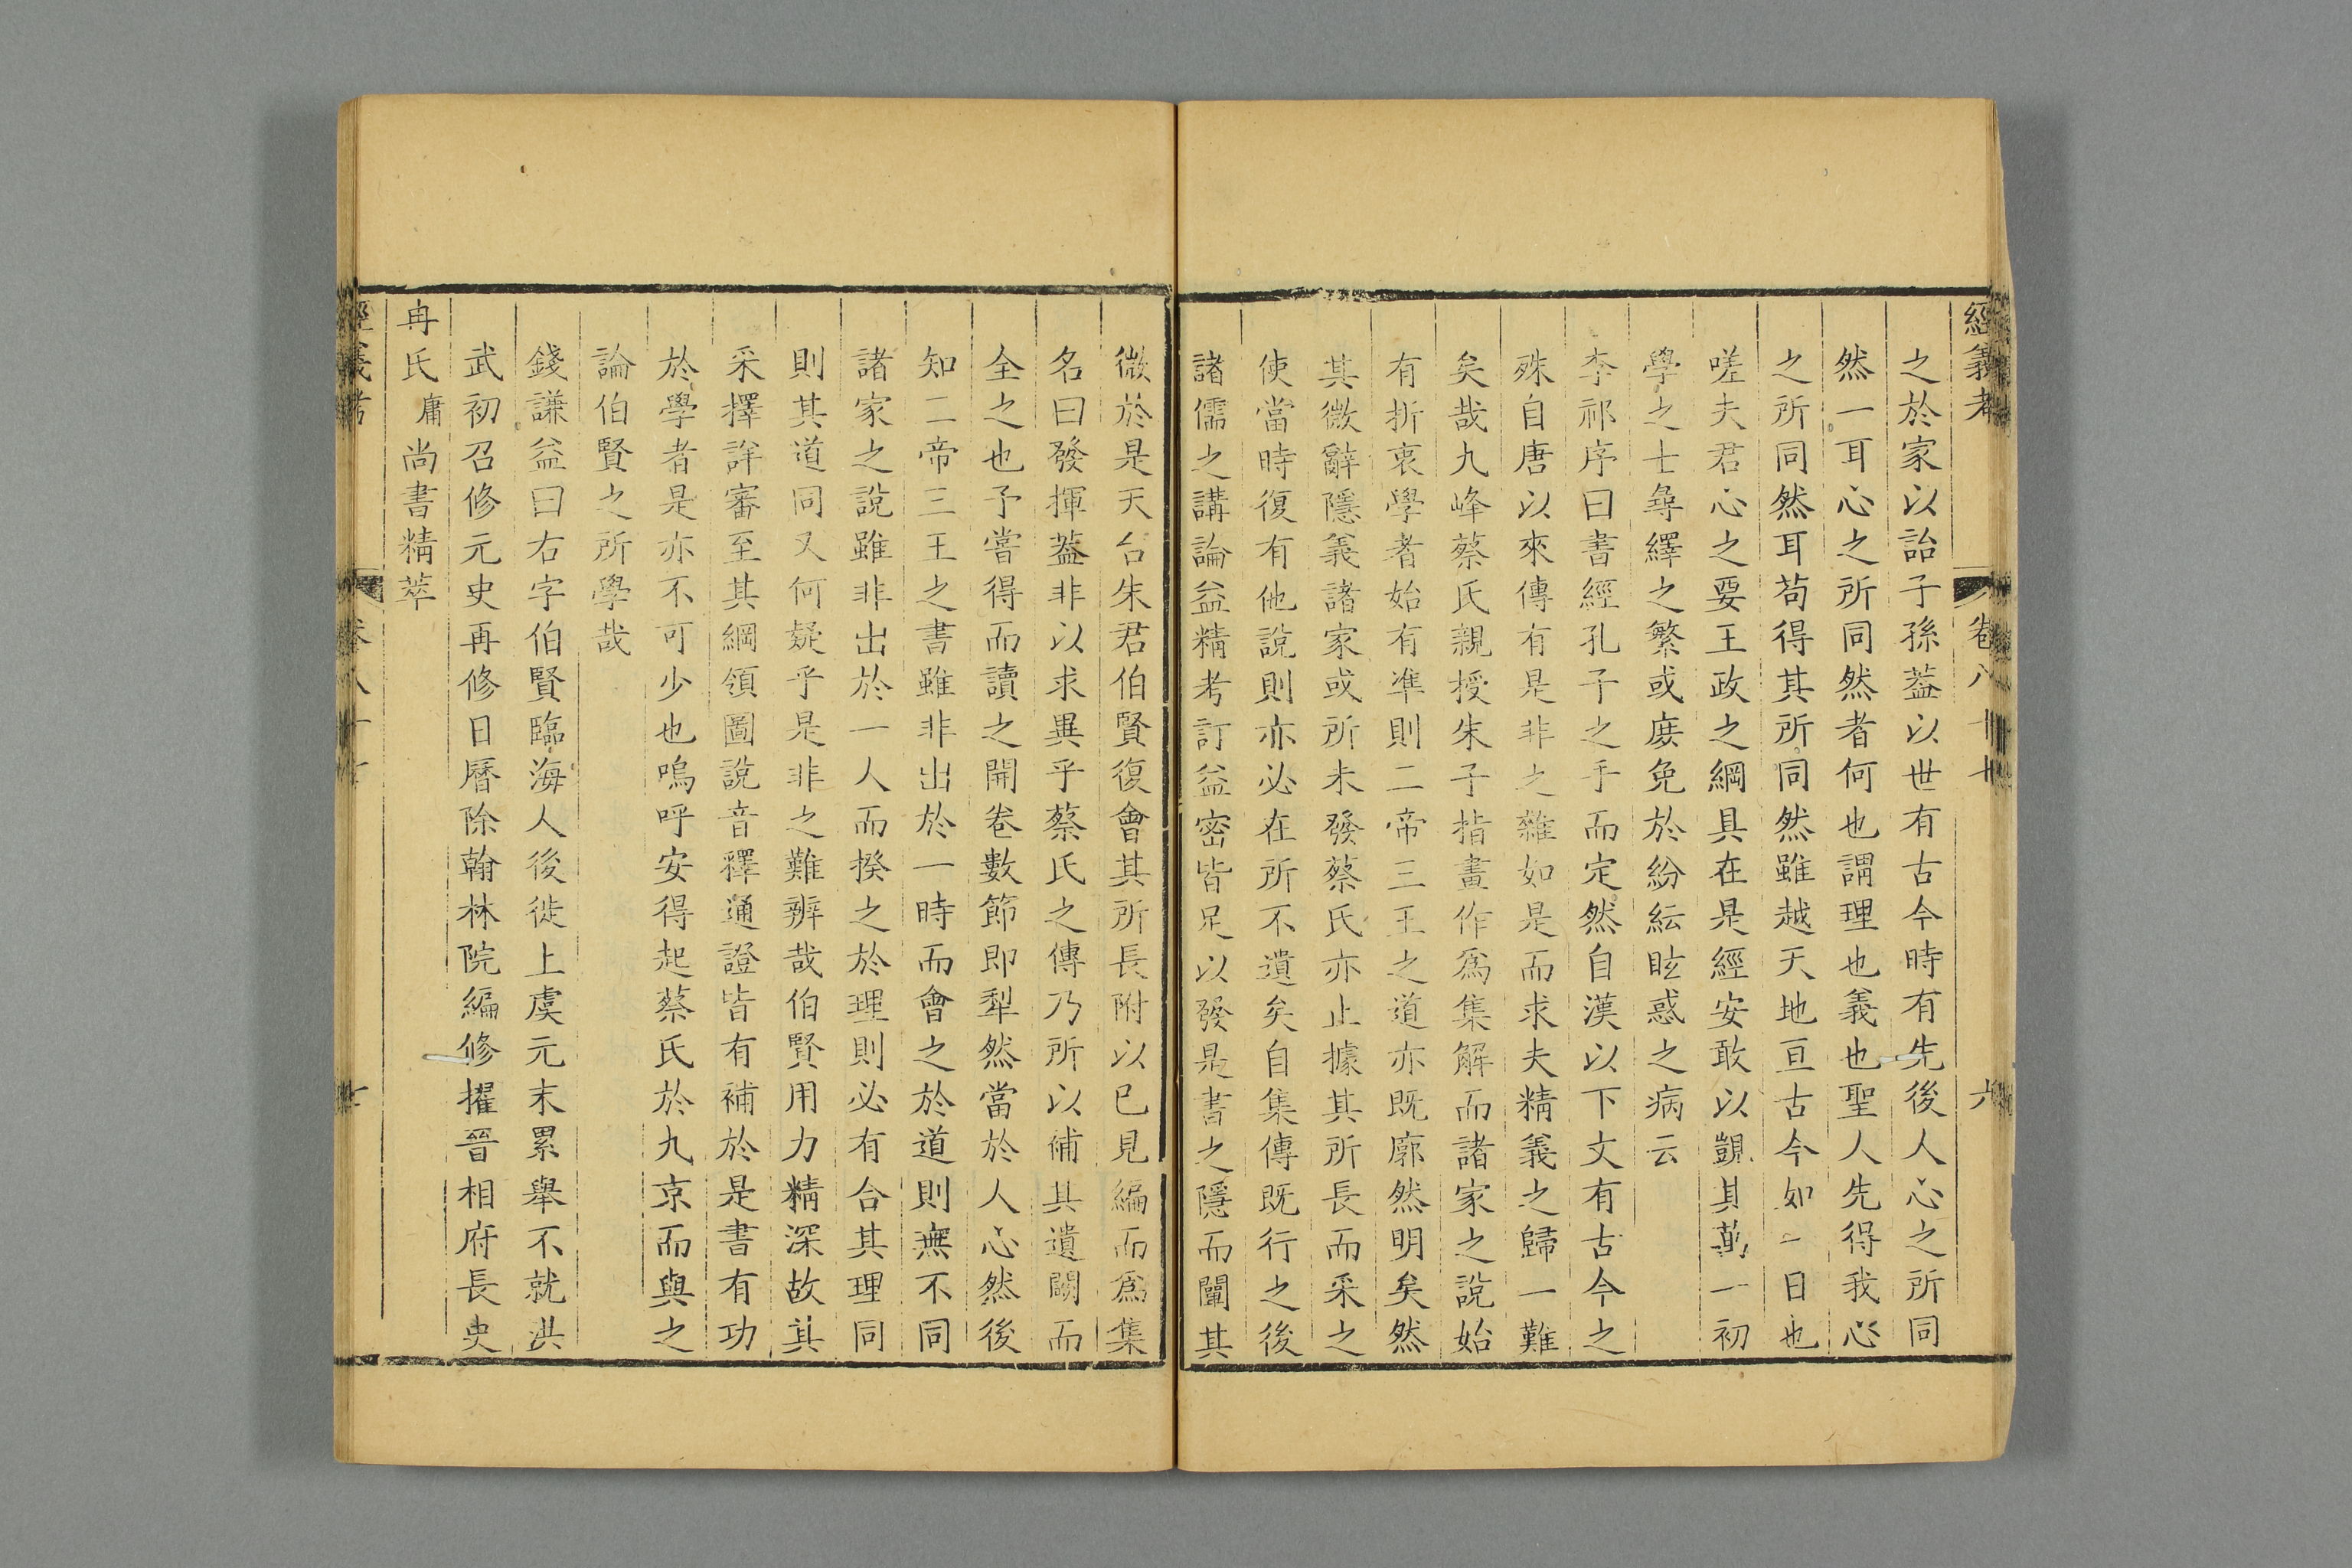 經義考 卷八十七 六
之於家以詒子孫葢以世有古今時有先後人心之所同
然一耳心之所同然者何也謂理也義也聖人先得我心
之所同然耳苟得其所同然雖越天地亘古今如一日也
嗟夫君心之要王政之綱具在是經安敢以覬其萬一初
學之士尋繹之繁或庶免於紛紜眩惑之病云
李祁序曰書經孔子之手而定然自漢以下文有古今之
殊自唐以來傳有是非之雜如是而求夫精義之歸一難
矣哉九峰蔡氏親授朱子指畫作爲集解而諸家之說始
有折衷學者始有準則二帝三王之道亦既廓然明矣然
其微辭隱義諸家或所未發蔡氏亦止據其所長而采之
使當時復有他說則亦必在所不遺矣自集傳既行之後
諸儒之講論益精考訂益密皆足以發是書之隱而闡其
微於是天台朱君伯賢復會其所長附以已見編而爲集
名曰發揮葢非以求異乎蔡氏之傳乃所以補其遺闕而
全之也予嘗得而讀之開卷數節即犁然當於人心然後
知二帝三王之書雖非出於一時而會之於道則無不同
諸家之說雖非出於一人而揆之於理則必有合其理同
則其道同又何疑乎是非之難辨哉伯賢用力精深故其
采擇詳審至其綱領圖說音釋通證皆有補於是書有功
於學者是亦不可少也嗚呼安得起蔡氏於九京而與之
論伯賢之所學哉
錢謙益曰右字伯賢臨海人後徙上虞元末累舉不就洪
武初召修元史再修日曆除翰林院編修擢晉相府長史
冉氏庸尚書精萃
經義考 卷八十七 七